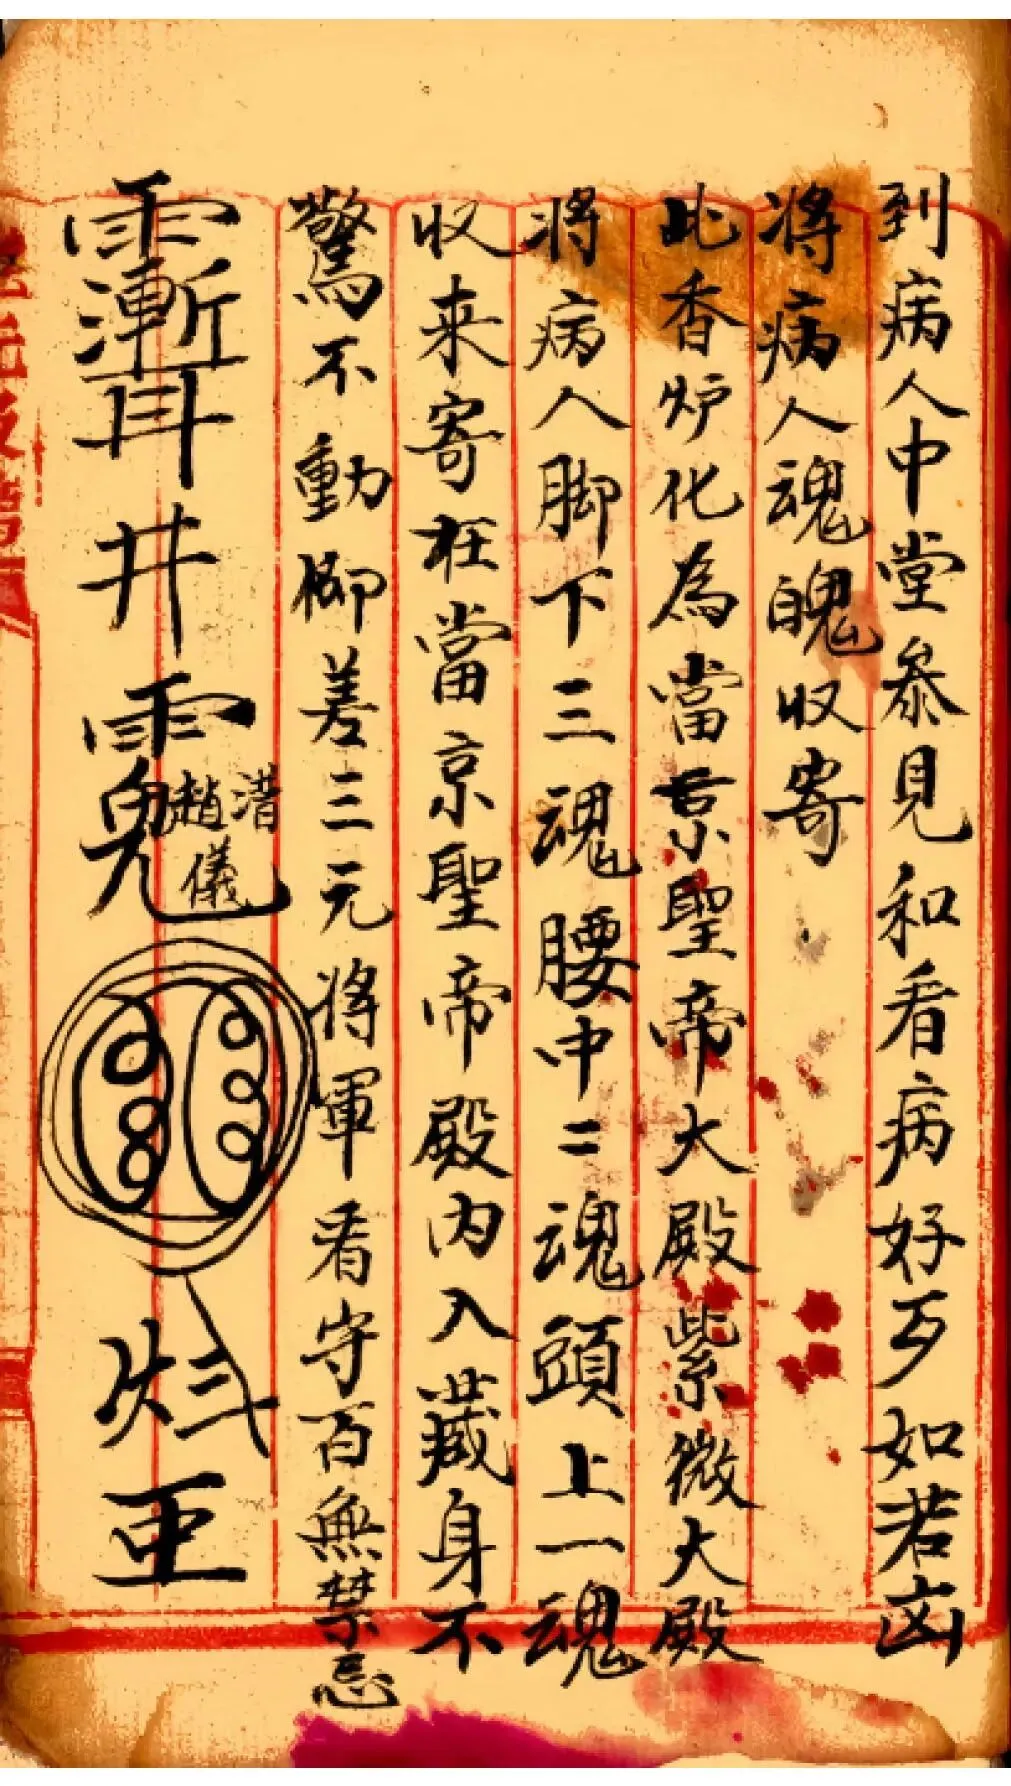 到病人中堂叅見和看病好歹如若凶
将病人魂魄收寄
此香炉化為當京聖帝大殿紫微大殿
将病人脚下三魂腰中二魂頭上一魂
收来寄在當京聖帝殿内入藏身不
驚不動柳差三元将軍看守百無禁忌
井
趙 清
儀